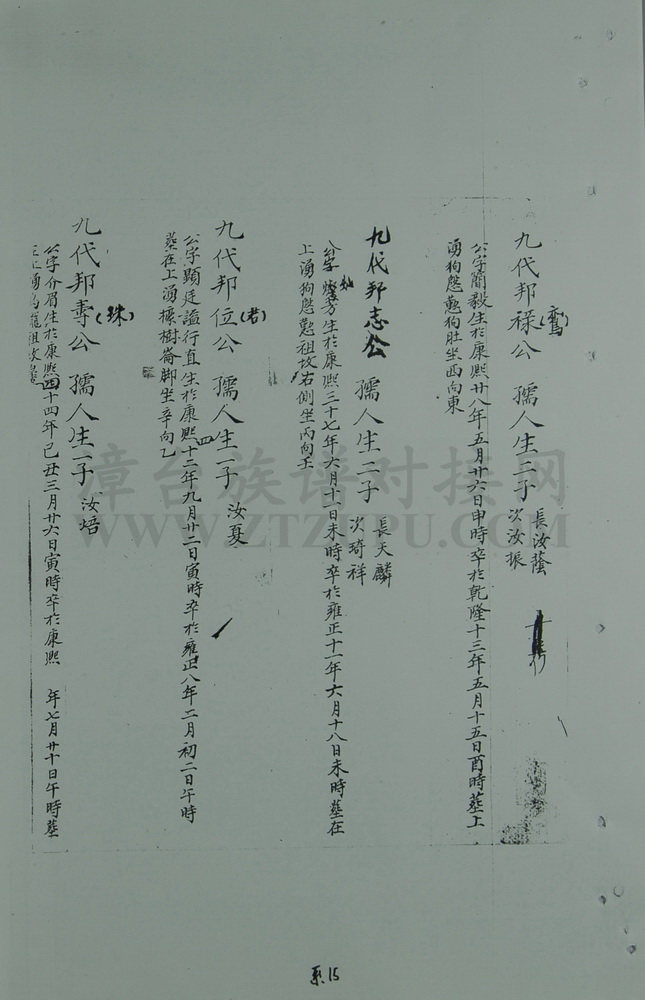 九代邦祿公(鸞) 孺人生二子 長汝蔭
次汝振
公字簡毅生於康熙廿八年五月廿六日申時卒於乾隆十三年五月十五日酉時墓上
湧狗 狗肚坐西向東
九代邦志公 孺人生二子 長天麟
次琦祥
公字燦芳生於康熙三十七年六月十一日未時卒於雍正十一年六月十八日未時墓在
上湧狗 祖坟右側坐丙向壬
九代邦位公(君) 孺人生一子 汝夏
公字顯廷謚行直生於康熙四十二年九月廿二日寅時卒於雍正八年二月初二日午時
墓在上湧 樹崙脚坐辛向乙
九代邦壽公(珠) 孺人生一子 汝焙
公字介眉生於康熙四十四年己丑三月廿六日寅時卒於康熙 年七月廿十日午時墓
祖坟
漳台族谱对接网
WWW.ZTZUPU.COM
系15